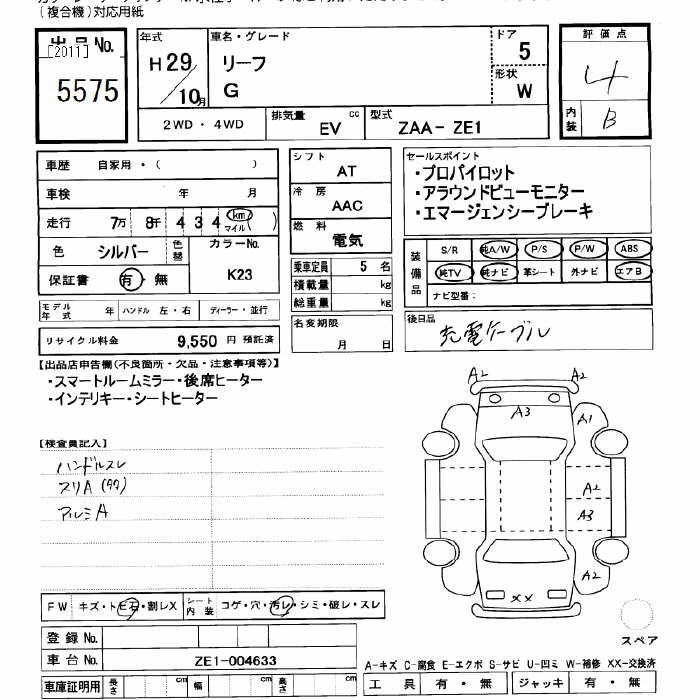 (複合機)対応用紙
出品No.
[2011]
5575
年式
H29/10月
車名・グレード
リーフ
G
ドア
5
形状
W
評価点
4
内装
B
2WD・4WD
排気量
cc
EV
型式
ZAA-ZE1
車歴 自家用・( )
車検 年 月
走行 7万 8千 4 3 4 km マイル ( )
色 シルバー
色替
カラーNo.
K23
保証書 有・無
シフト
AT
冷房
AAC
燃料
電気
乗車定員 5 名
積載量 kg
総重量 kg
セールスポイント
・プロパイロット
・アラウンドビューモニター
・エマージェンシーブレーキ
装備品
S/R 純A/W P/S P/W ABS
純TV 純ナビ 革シート 外ナビ エアB
ナビ型番:
モデル年式 年 ハンドル 左・右 ディーラー・並行
リサイクル料金 9,550 円 預託済
名変期限
月 日
後日品
充電ケーブル
【出品店申告欄(不良箇所・欠品・注意事項等)】
・スマートルームミラー・後席ヒーター
・インテリキー・シートヒーター
【検査員記入】
ハンドルスレ
スリA(タタ)
アルミA
A2 A2
A3 A1
A2
A3
A2
XX
FW キズ・トビ石・割レX
シート内装 コゲ・穴・汚レ・シミ・破レ・スレ
登録No.
車台No. ZE1-004633
車庫証明用 長さ cm 幅 cm 高さ cm
スペア
A-キズ C-腐食 E-エクボ S-サビ U-凹ミ W-補修 XX-交換済
工具 有・無 ジャッキ 有・無